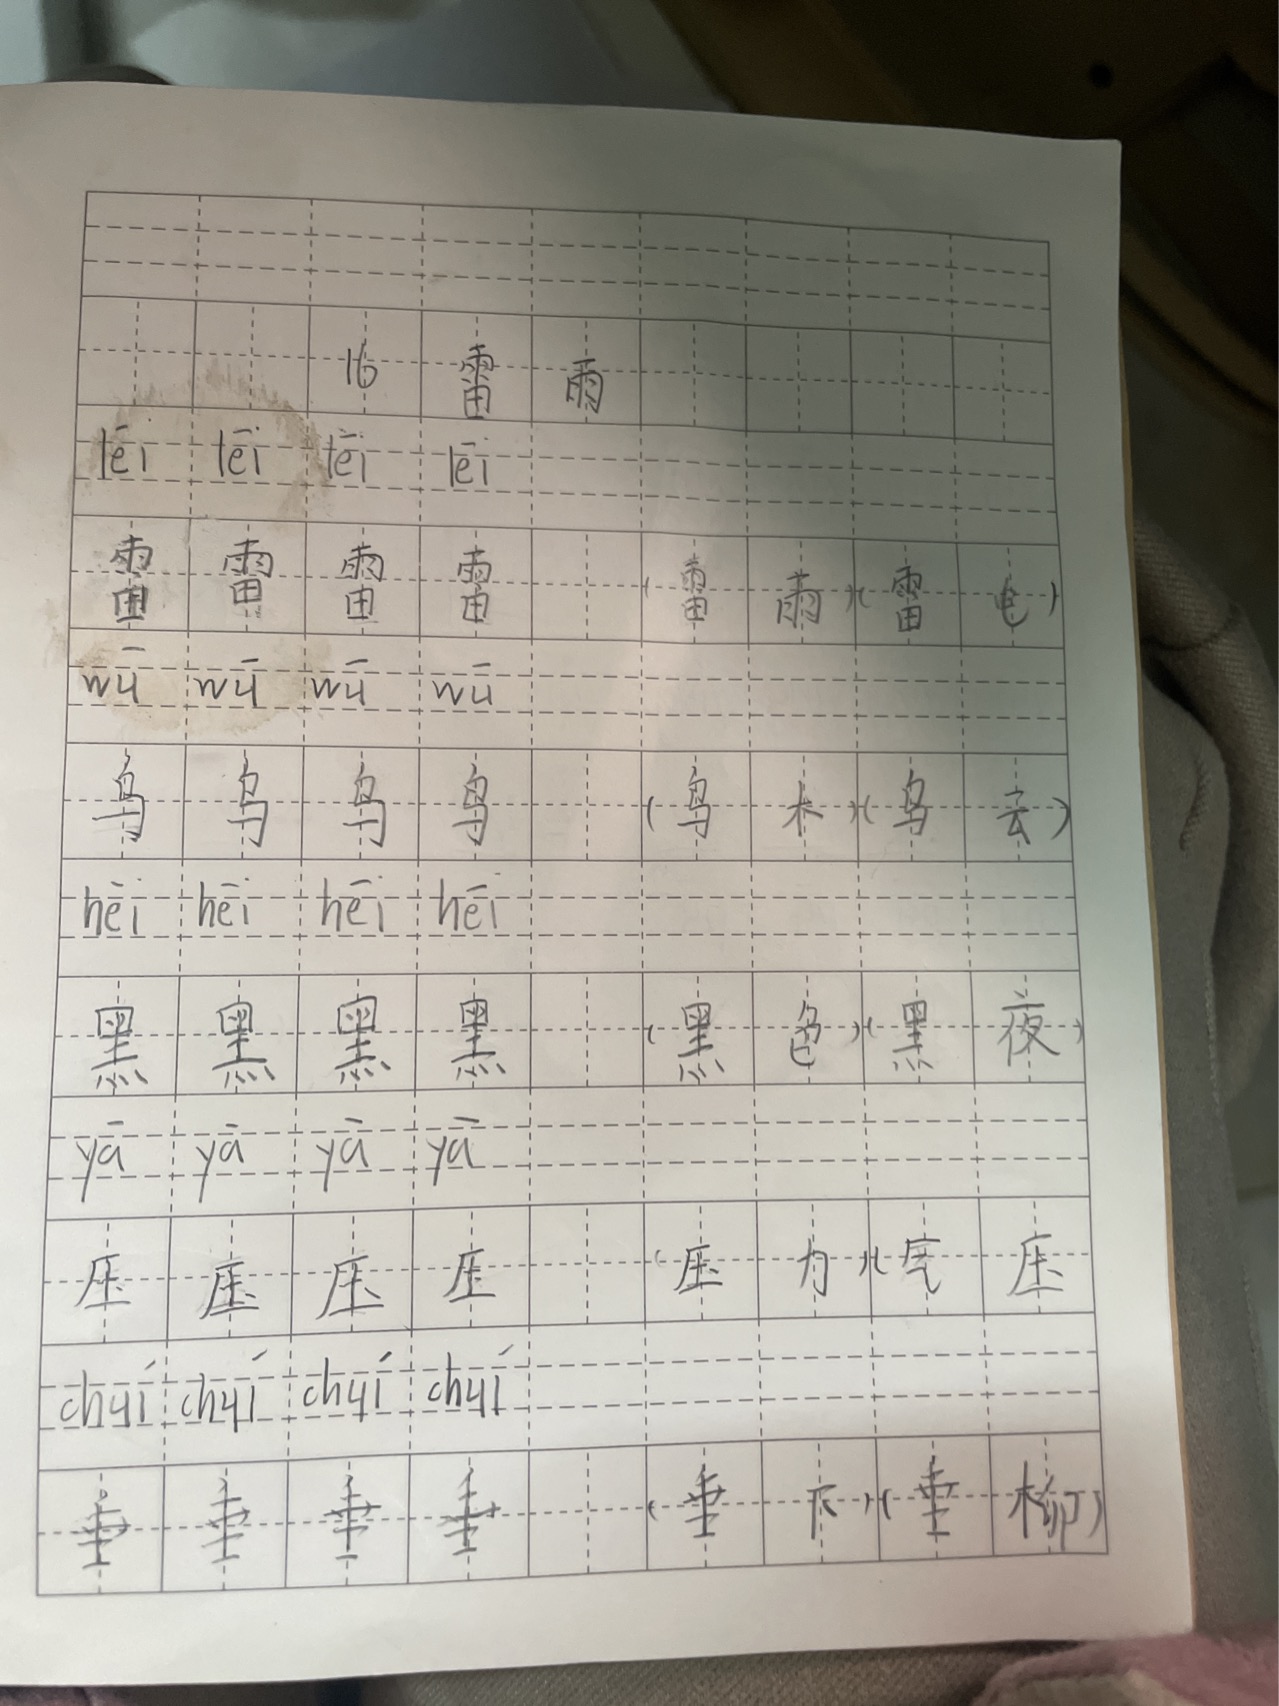 16 雷 雨
lēi lēi lēi lēi
雷 雷 雷 雷 (雷 雨)(雷 电)
wū wū wū wū
乌 乌 乌 乌 (乌 木)(乌 云)
hēi hēi hēi hēi
黑 黑 黑 黑 (黑 色)(黑 夜)
yā yā yā yā
压 压 压 压 (压 力)(气 压
chuí chuí chuí chuí
垂 垂 垂 垂 (垂 下)(垂 柳)